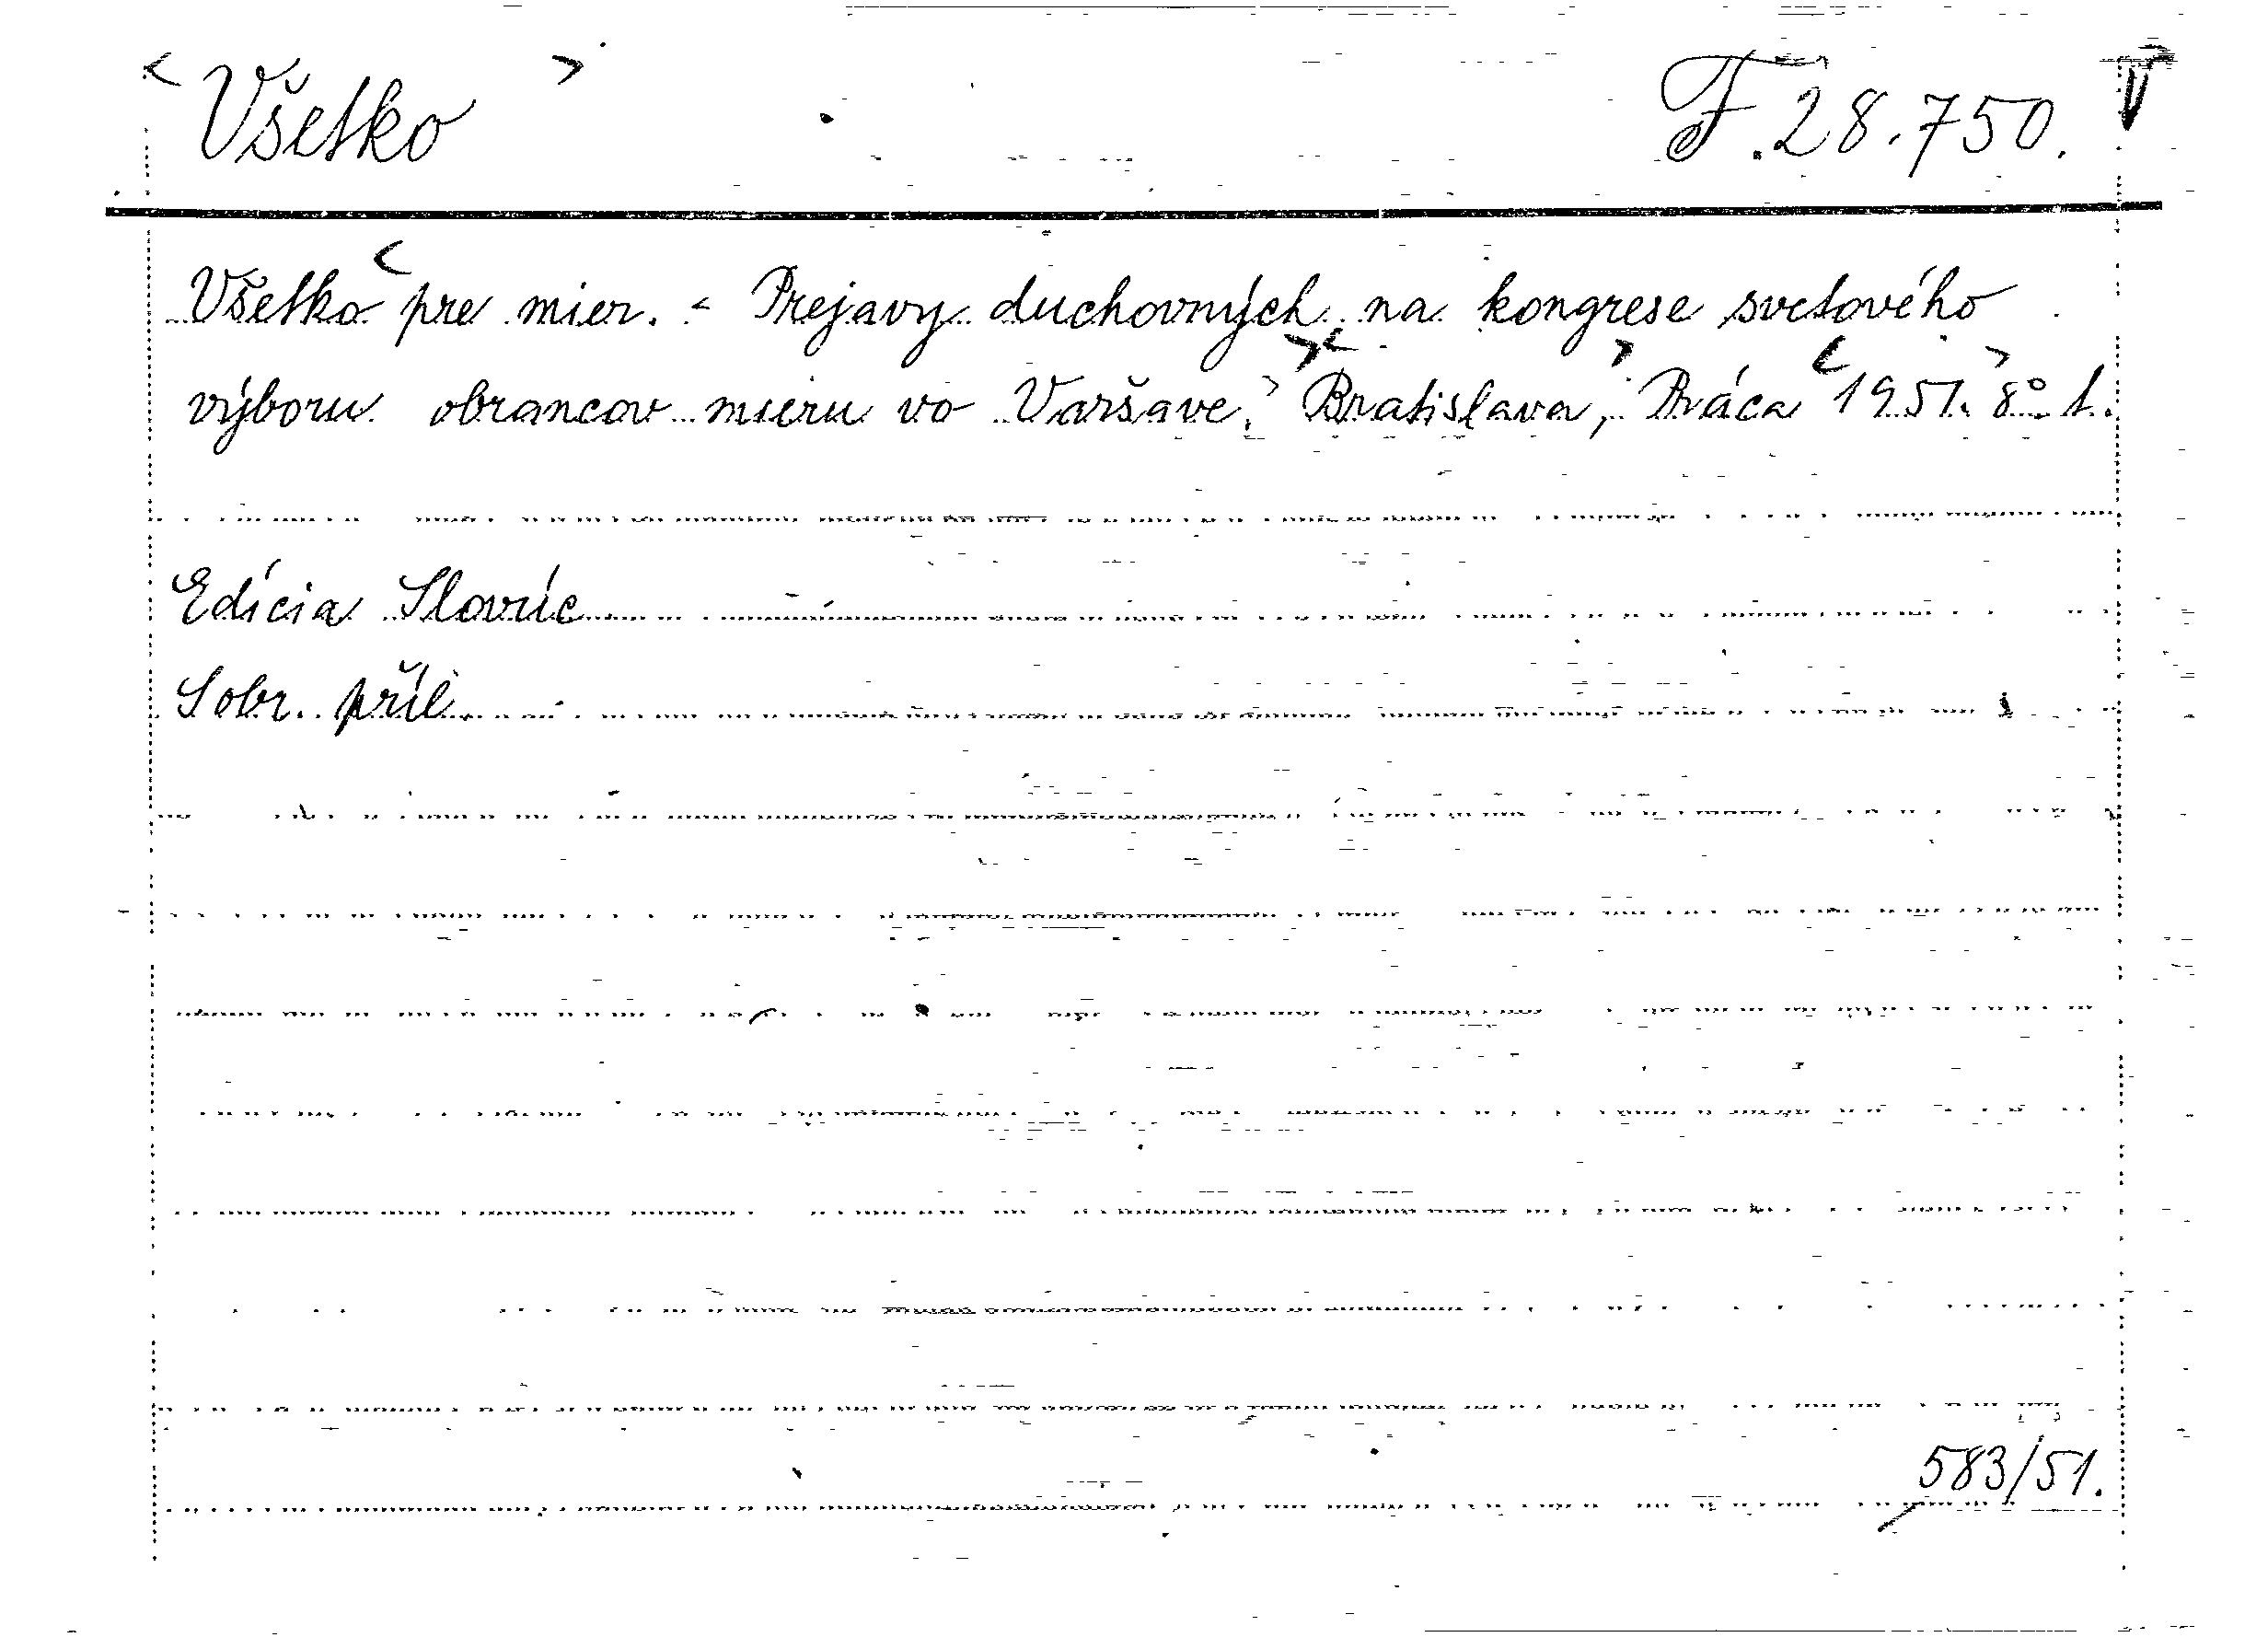 < Všetko > F. 28.750. V
Všetko < pre mier. - Prejavy duchovných na kongrese svetového
výboru obrancov mieru vo Varšave. >< Bratislava, > Práca < 1951. > 8° 1.
Edícia Slovíc
Sobr. příl.
583/51.